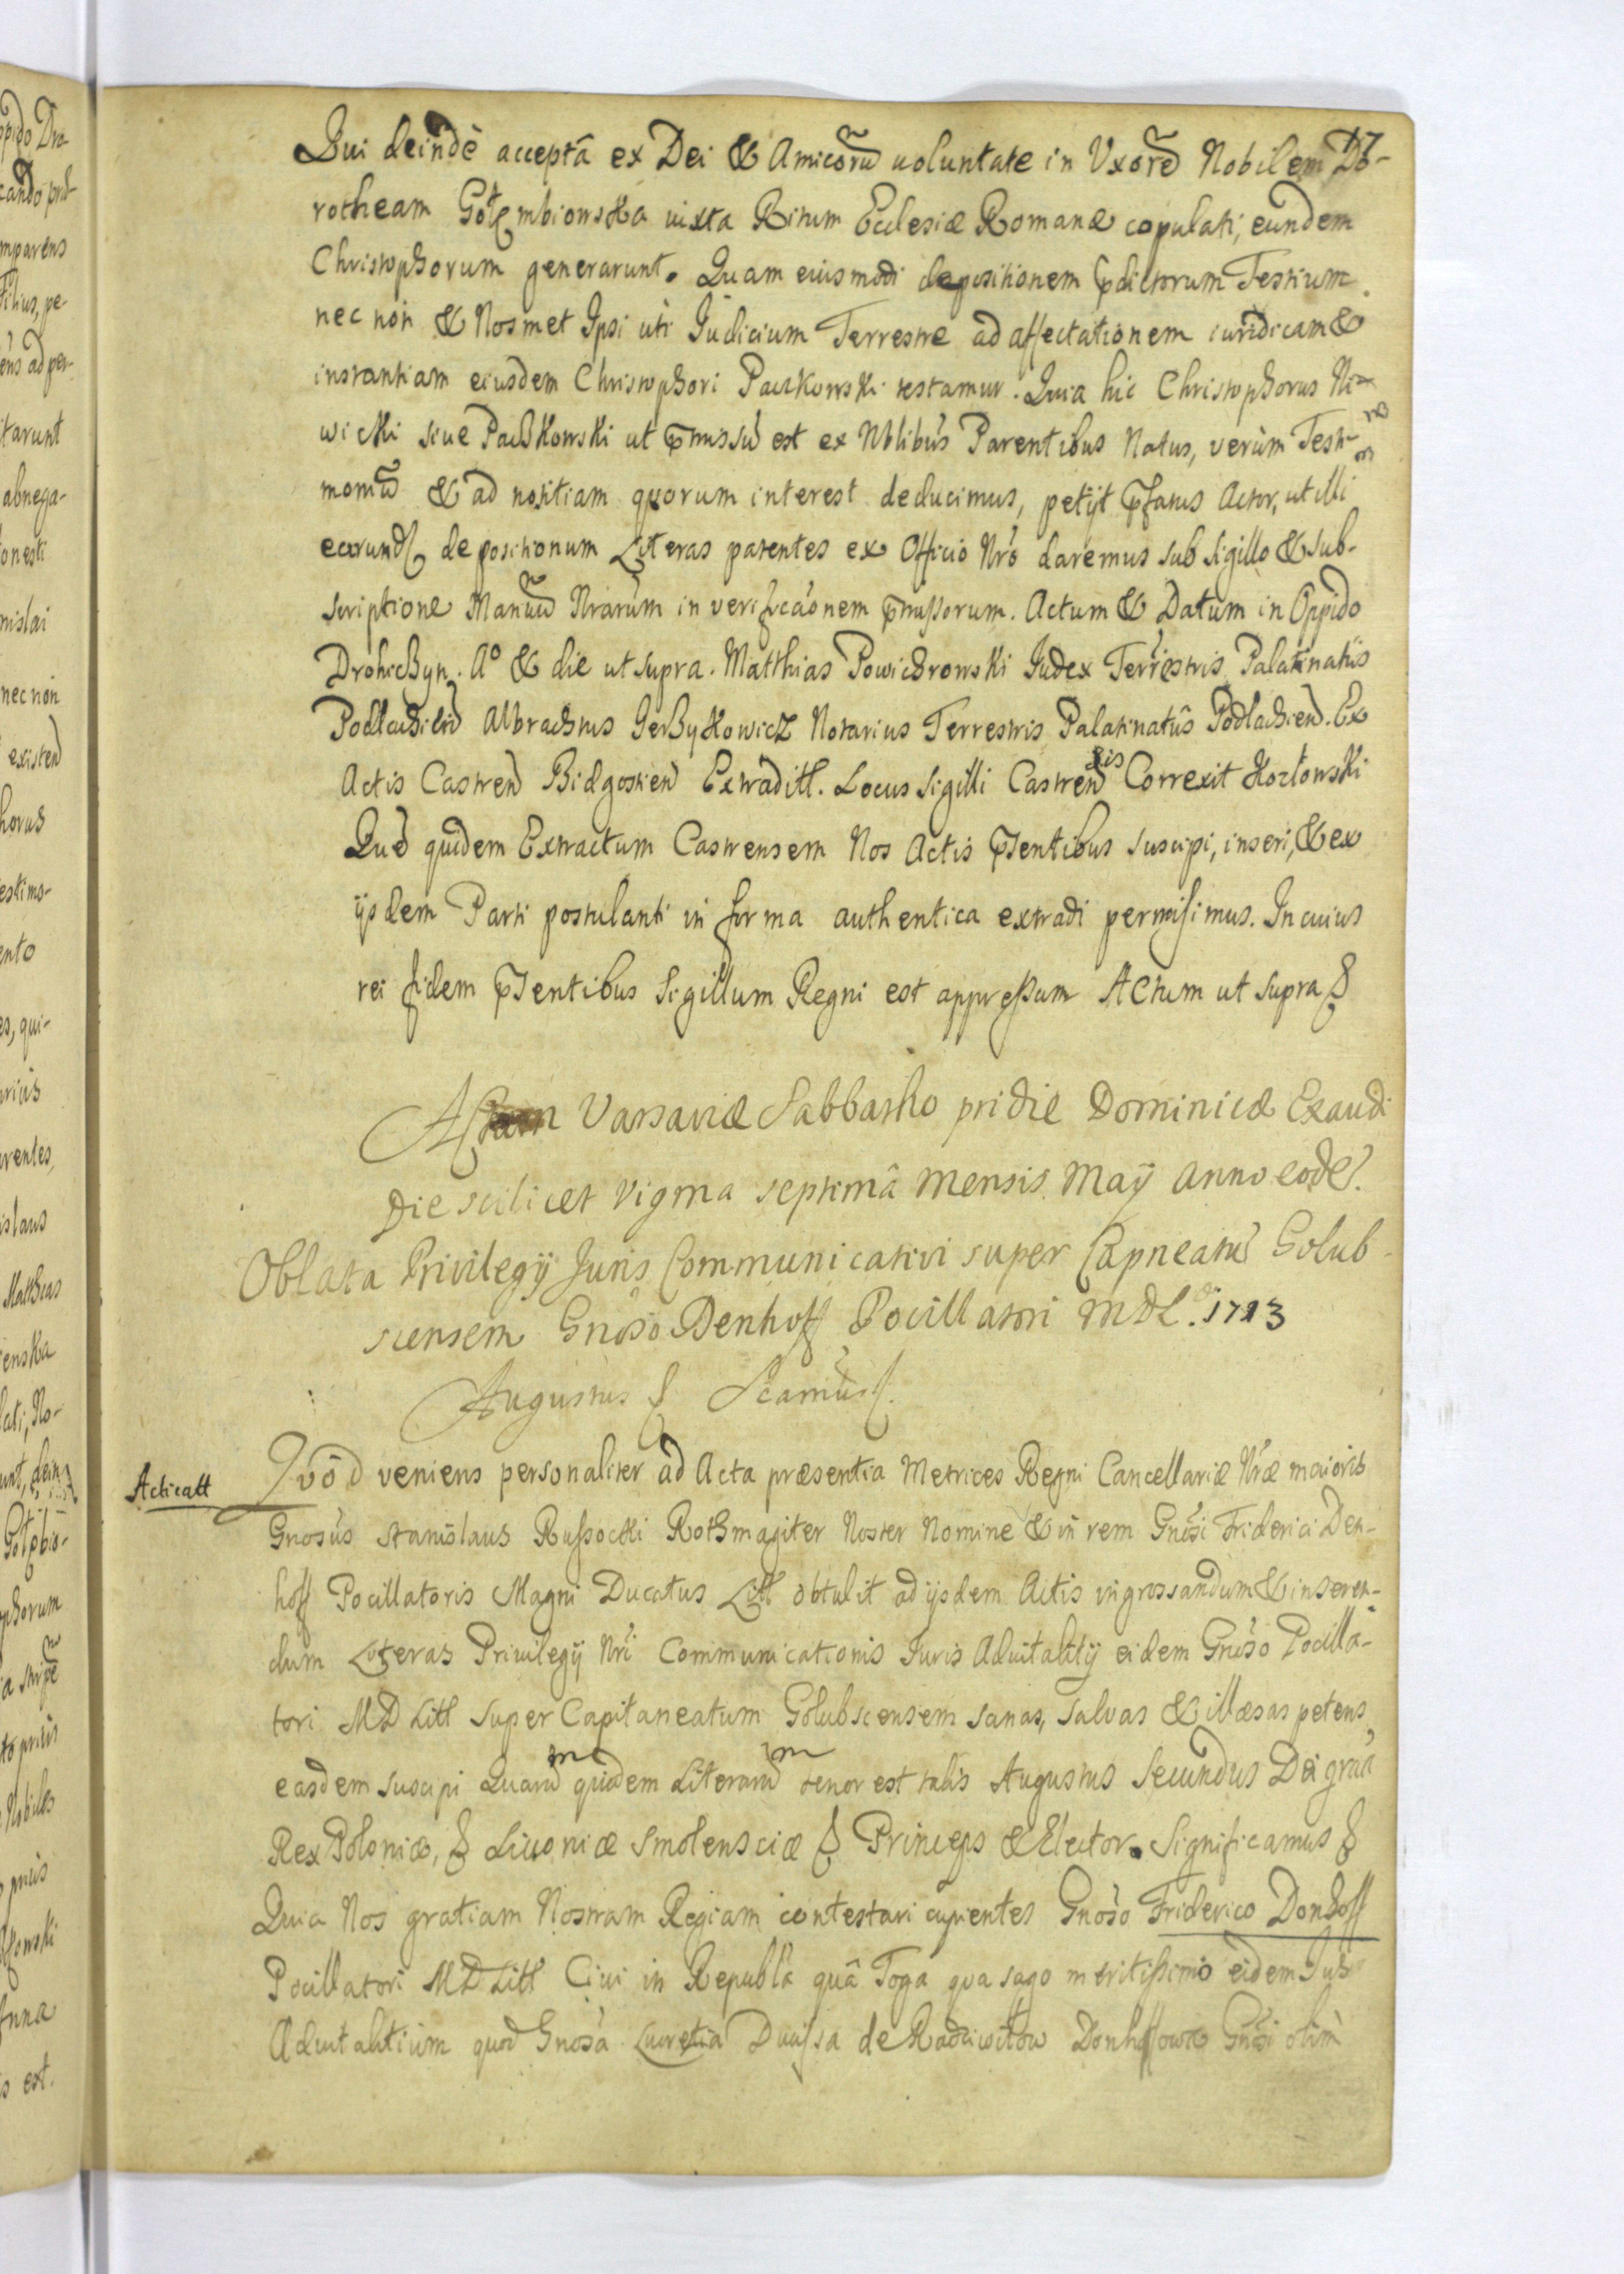 17
Qui deindè acceptâ ex Dei & Amicorũ uoluntate in Vxorẽ Nobilem Do-
rotheam Gołęmbiowska iuxta Ritum Ecclesiæ Romanæ copulati, eundem
Christophorum generarunt. Quam eiusmodi depositionem pdictorum Testium
nec nòn & Nosmet Ipsi uti Iudicium Terrestre ad affectationem iuridicam &
instantiam eiusdem Christophori Paczkowski testamur. Quia hic Christophorus Ni-
wicki siue Paczkowski ut pmissũ est ex Nblibùs Parentibus Natus, verùm Testi-
moniũ & ad notitiam quorum interest deducimus, petÿt pfatus Actor, ut illi
earund depositionum Literas patentes ex Officio Nrò daremus sub Sigillo & sub-
scriptione Manuũ Nrarùm in verificãonem pmissorum. Actum & Datum in Oppido
Drohiczyn. Ao & die ut supra. Matthias Powichrowski Iudex Terrestris Palatinatûs
Podlachieñ Albrachtus Gerzykowicz Notarius Terrestris Palatinatûs Podlachieñ. Ex
Actis Castreñ Bidgostieñ Extraditt. Locus Sigilli Castreñsis Correxit Kozłowski
Quod quidem Extractum Castrensem Nos Actis pntibus suscipi, inseri, & ex
ijsdem Parti postulanti in forma authentica extradi permisimus. In cuius
rei fidem psentibus Sigillum Regni est appressum Actum ut supra &
Actum Varsaviæ Sabbatho pridie Dominicæ Exaudi
Die scilicet vigma septimâ mensis Maÿ anno eodẽ.
Oblata Privilegÿ Juris Communicativi super Capneatũ Golub-
scensem Gnoso Denhoff Pocillatori M D L. 1713
Augustus & Scamùs &.
Acticatt
Qvòd veniens personaliter ad Acta præsentia Metrices Regni Cancellariæ Nræ maioris
Gnosùs Stanislaus Russocki Rothmagiter Noster Nomine & in rem Gnosi Friderici Den-
hoff Pocillatoris Magni Ducatus Litt obtulit ad ijsdem Actis ingrossandum & inseren-
dum Literas Privilegÿ Nri Communicationis Iuris Aduitalitÿ eidem Gnoso Pocilla-
tori M D Litt super Capitaneatum Golubscensem sanas, salvas & illæsas petens
easdem suscipi Quarũ quidem Literarũ tenor est talis Augustus Secundus Dei grãa
Rex Poloniæ, & Liuoniæ Smolensciæ & Princeps & Elector. Significamus &
Quia Nos gratiam Nostram Regiam contestari cupientes Gnoso Friderico Donhoff
Pocillatori M D Litt Ciui in Republâ quâ Toga qua sago meritissimo eidem Jus
Aduitalitium quod Gnosa Lucretia Duissa de Radiwiłłow Donhoffowa Gnosi olim